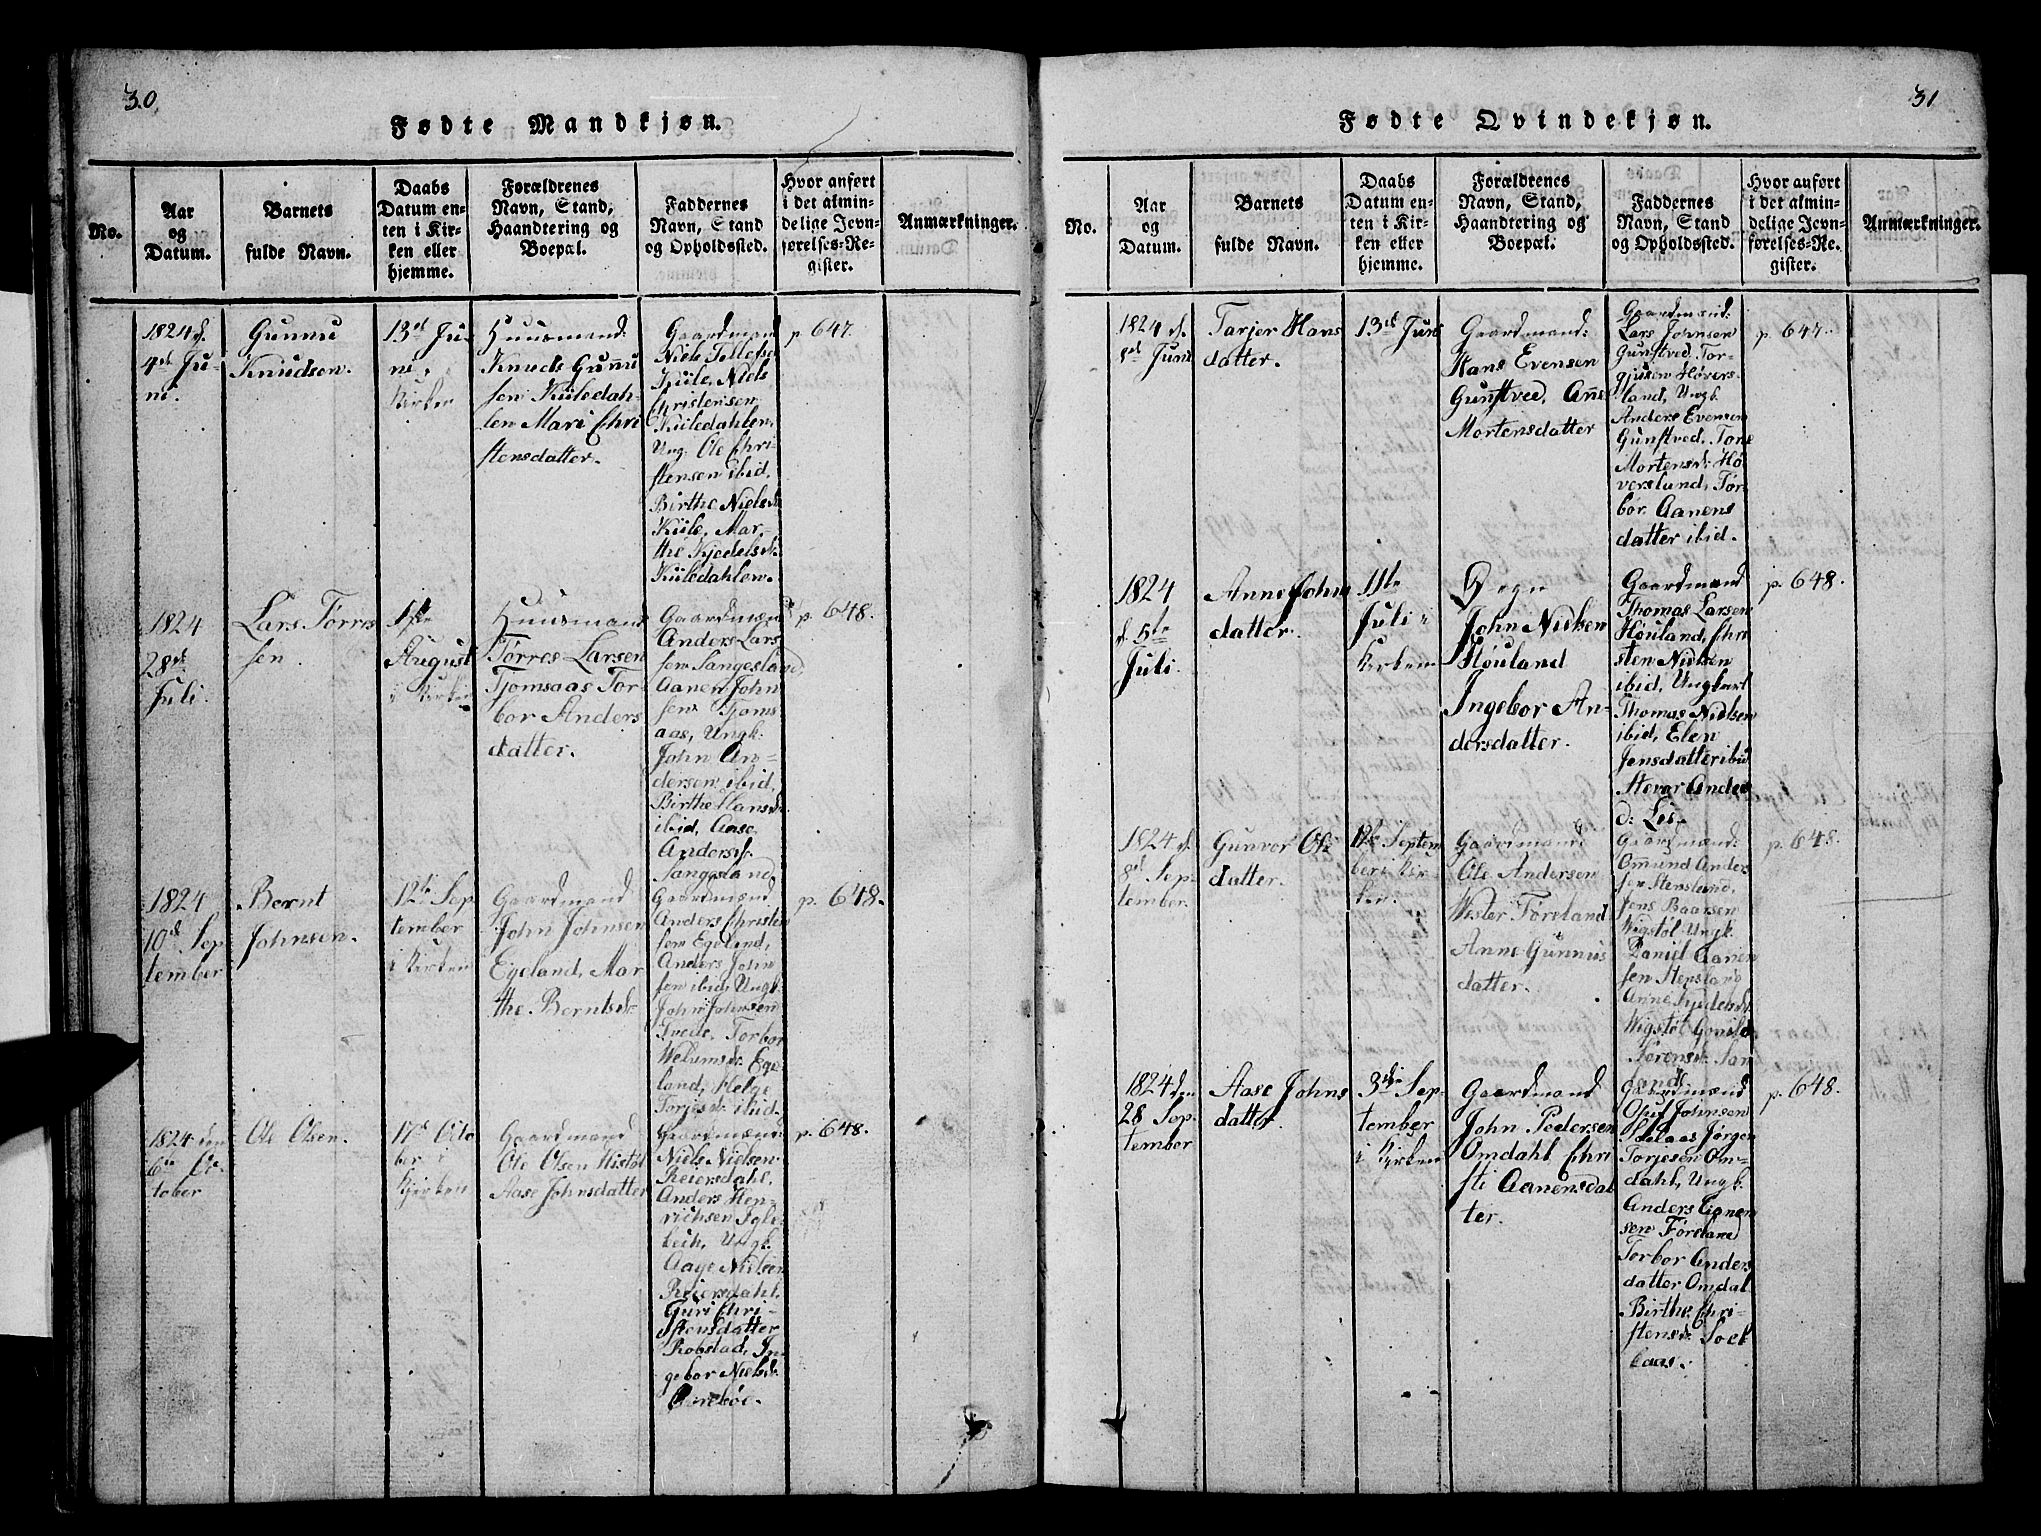 30.
Fødte Mandkjøn.
No.
Aar
og
Datum.
Barnets
fulde Navn.
Daabs
Datum en-
ten i Kir-
ken eller
hjemme.
Forældrenes
Navn, Stand,
Haandtering og
Boepæl.
Faddernes
Navn, Stand
og Opholdssted.
Hvor anført
i det almin-
delige Jevn-
førelses-Re-
gister.
Anmærkninger.
1824 d.
4de Ju-
ni.
Gunnu
Knudsen.
13de Ju-
ni i
Kirken
Huusmand
Knuds Gunnu
sen Kuledah-
len Mari Chri
stensdatter.
Gaardmand
Niels Tellefse
Kule, Niels
Christensen
Kuledahlen,
Ung. Ole Chri-
stensen ibid,
Birthe Nielsd.
Kule, Mar-
the Kjedelsd.
Kuledahlen.
p. 647.
1824
28de
Juli.
Lars Tørres
sen.
1ste
August
i Kirken
Huusmand
Tørres Larsen
Tjomsaas Tor-
bor Anders
datter.
Gaardmænd
Anders Lars
sen Sangesland,
Aanen John
sen Tjoms
aas, Ungk.
John An-
dersen ibid,
Birthe Hansd.
ibid, Aase
Andersd.
Sangesland.
p. 648.
1824
10de Sep
tember
Bernt
Johnsen.
12te Sep
tember
i Kirken
Gaardmand
John Johnsen
Egeland, Mar
the Berntsd.
Gaardmænd
Anders Christen
sen Egeland,
Anders John
sen ibid, Ungk.
John Johnsen
Tvede, Torbor
Welumsd. Ege-
land, Helge
Torjesd. ibid.
p. 648.
1824 den
6te Oc-
tober
Ole Olsen.
17de Octo
ber i
Kirken
Gaardmand
Ole Olsen Histøl
Aase Johnsdatter
Gaardmænd
Niels Nielsen
Reiersdahl,
Anders Hen-
richsen Igle-
leih, Ungk.
Aage Nielsen
Reiersdahl,
Guri Chri-
stensdatter
Robstad, In-
gebor Nielsd.
p. 648.
31
Fødte Qvindekjøn.
No.
Aar
og
Datum.
Barnets
fulde Navn.
Daabs
Datum en-
ten i Kir-
ken eller
hjemme.
Forældrenes
Navn, Stand,
Haandtering og
Boepæl.
Faddernes
Navn, Stand
og Opholdssted.
Hvor anført
i det almin-
delige Jevn-
førelses-Re-
gister.
Anmærkninger.
1824 d.
8de Juni
Tarjer Hans
datter.
13de Juni
Gaardmand:
Hans Evensen
Gunstved, Anne
Mortensdatter
Gaardmænd:
Lars Johnsen
Gunstved, Tor-
gjusen Høvers-
land, Ungk.
Anders Evensen
Gunstved, Tone
Mortensd. Hø
verslund, Tor-
bor Aanens
datter ibid.
p. 647.
1824
d. 5te
Juli.
Anne Johns
datter.
11te
Juli i
Kirken
Degn
John Nielsen
Houland
Ingebor An-
dersdatter.
Gaardmænd
Thomas Larsen
Houland, Chri
sten Nielsen
ibid, Ungkarl
Thomas Nielsen
ibid, Elen
Jensdatter ibid
Stevor Anders
d: Lie.
p. 648.
1824 d.
8de Sep-
tember.
Gunvor Ols
datter.
12te Septem
ber i Kir-
ken.
Gaardmand
Ole Andersen
Wester Føreland
Anne Gunnus
datter.
Gaardmænd:
Omund Anders
sen Stensland,
Jens Baarsen
Wigstøl Ungk.
Daniel Aanen
sen Stensland
Anne Kjedelsd.
Wigstøl Gonild
Sørensd. San
land.
p. 648.
1824 den
28 Sep-
tember
Aase Johns
datter
3die Sep-
tember
i Kirken
Gaardmand
John Pedersen
Omdahl Chri
sti Aanensdat
ter.
Gaardmænd
Osuf Johnsen
Solaas Jørgen
Torjesen Om-
dahl, Ungk.
Anders Aanen
sen Føreland
Torbor Anders
datter Omdal
Birthe Chri-
stensd. Soel
laas.
p. 648.